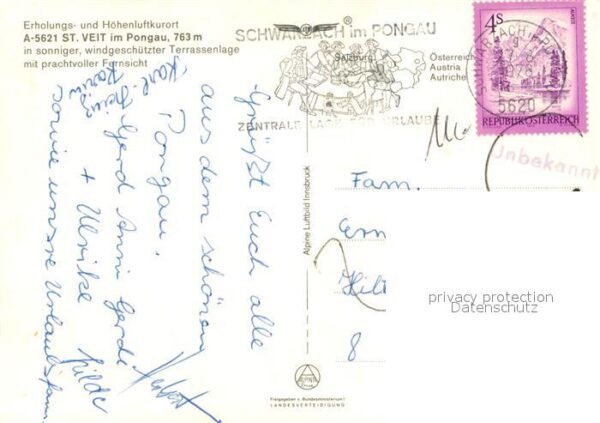 Erholungs- und Höhenluftkurort
A-5621 ST. VEIT im Pongau, 763 m
in sonniger, windgeschützter Terrassenlage
mit prachtvoller Fernsicht
SCHWARZACH im PONGAU
Salzburg
Österreich
Austria
Autriche
ZENTRALE LAGE FÜR URLAUBE
SCHWARZACH
5620
4S
REPUBLIK ÖSTERREICH
Unbekannt
Grüßt Euch alle
aus dem schönen
Pongau.
Gerd Anni Gerdi
+ Ulrike Hilde
sowie unsere
Karl-Heinz
Fam.
8
Alpine Luftbild Innsbruck
ALPINE
Freigegeben v. Bundesministerium f.
LANDESVERTEIDIGUNG
privacy protection
Datenschutz